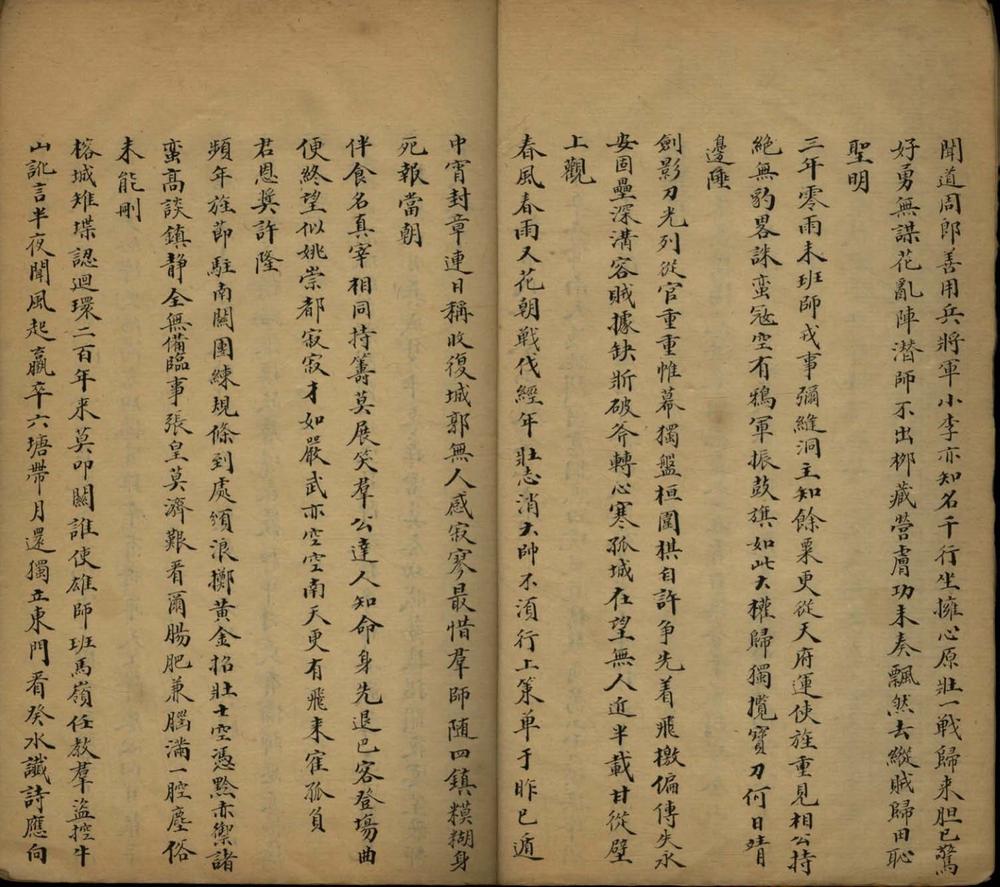 聞道周郎善用兵將軍小李亦知名千行坐擁心原壯一戰歸來胆已驚
好勇無謀花亂陣潛師不出柳藏營膚功未奏飄然去縱賊歸田恥
聖明
三年零雨未班師戎事彌縫洞主知餘粟更從天府運使旌重見相公持
絕無豹畧誅蛮冦空有鴉軍振鼓旗如此大權歸獨攬寶刀何日靖
邊陲
劍影刀光列從官重重惟幕獨盤桓圍棋自許争先着飛檄偏傳失永
安固壘深溝容賊據缺斨破斧轉心寒孤城在望無人近半載甘從壁
上觀
春風春雨又花朝戦伐經年壯志消大帥不須行上策单于昨已遁
中宵封章連日稱收復城郭無人感寂寥最惜羣師随四鎮糢糊身
死報當朝
伴食名真宰相同持籌莫展笑羣公達人知命身先退巴客登塲曲
便終望似姚崇都寂寂才如嚴武亦空空南天更有飛来寉孤負
君恩奨許隆
頻年旌節駐南關團練規條到處頒浪擲黄金招壯士空憑黔赤禦諸
蛮高談鎮静全無俻臨事張皇莫濟艱看爾腸肥兼腦滿一腔塵俗
未能刪
榕城雉堞認迴環二百年来莫叩關誰使雄師班馬嶺任教羣盗控牛
山訛言半夜聞風起羸卒六塘帶月還獨立東門看癸水讖詩應向